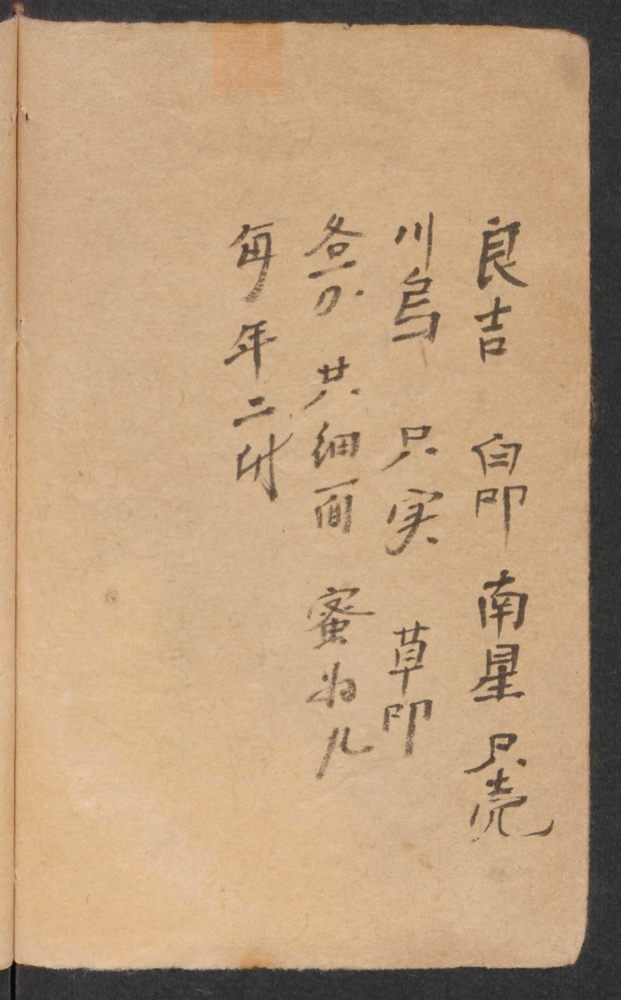 良吉 白叩 南星 只壳
川乌 只实 草叩
各一分 共细面 蜜为儿
每年二付